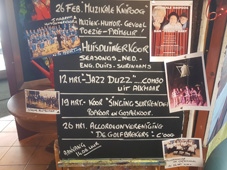 26 FEB. MUZIKALE KNIPOOG
MUZIEK-HUMOR-GEVOEL
POËZIE-
HUISDUINERKOOR
SEASONS, NED.-
ENG. DUITS-SURINAAMS
12 MRT. - "JAZZ DUZZ" .... COMBO
UIT ALKMAAR
19 MRT - KOOR "SINGING
POPKOOR EN GOSPELKOOR
26 MRT. ACCORDEONVERENIGING
"DE GOLFBREKERS"
AANVANG
UUR